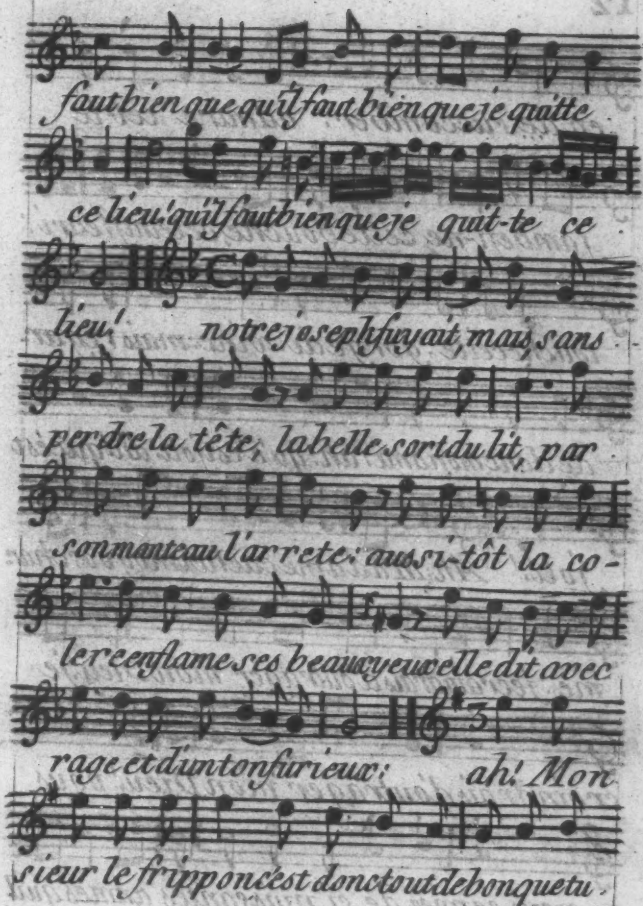 faut bien que qu'il faut bien que je quitte
ce lieu! qu'il faut bien que je quit-te ce
lieu! notre joseph fuyait, mais, sans
perdre la tête, la belle sort du lit, par
son manteau l'arrete: aussi-tôt la co-
lere enflame ses beaux yeux elle dit avec
rage et d'un ton furieux: ah! Mon
sieur le frippon c'est donc tout de bon que tu